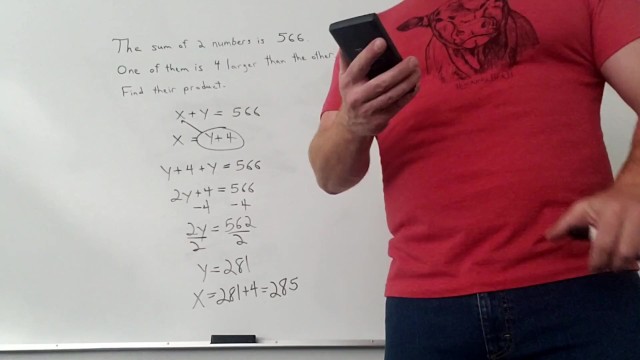 The sum of 2 numbers is 566
One of them is 4 larger than the other
Find their product.
x + y = 566
x = y+4
y+4 + y = 566
2y+4 = 566
-4 -4
2y/2 = 562/2
y = 281
x = 281+4 = 285